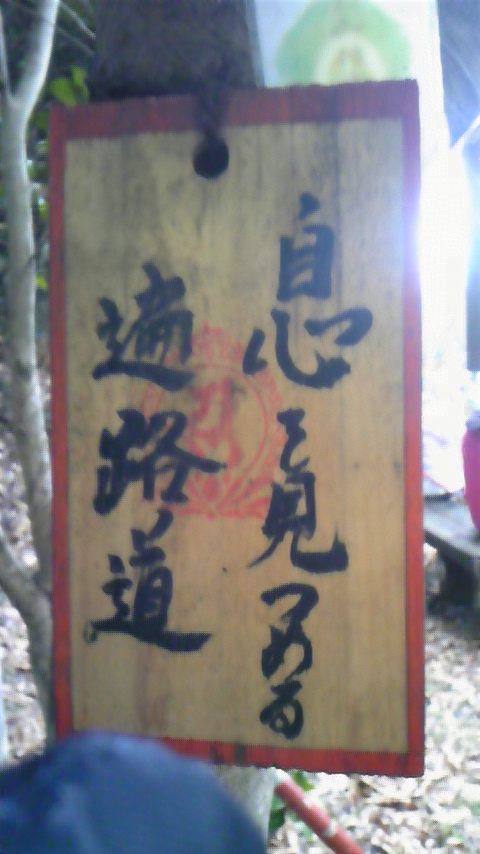 自心を見つめる
遍路道